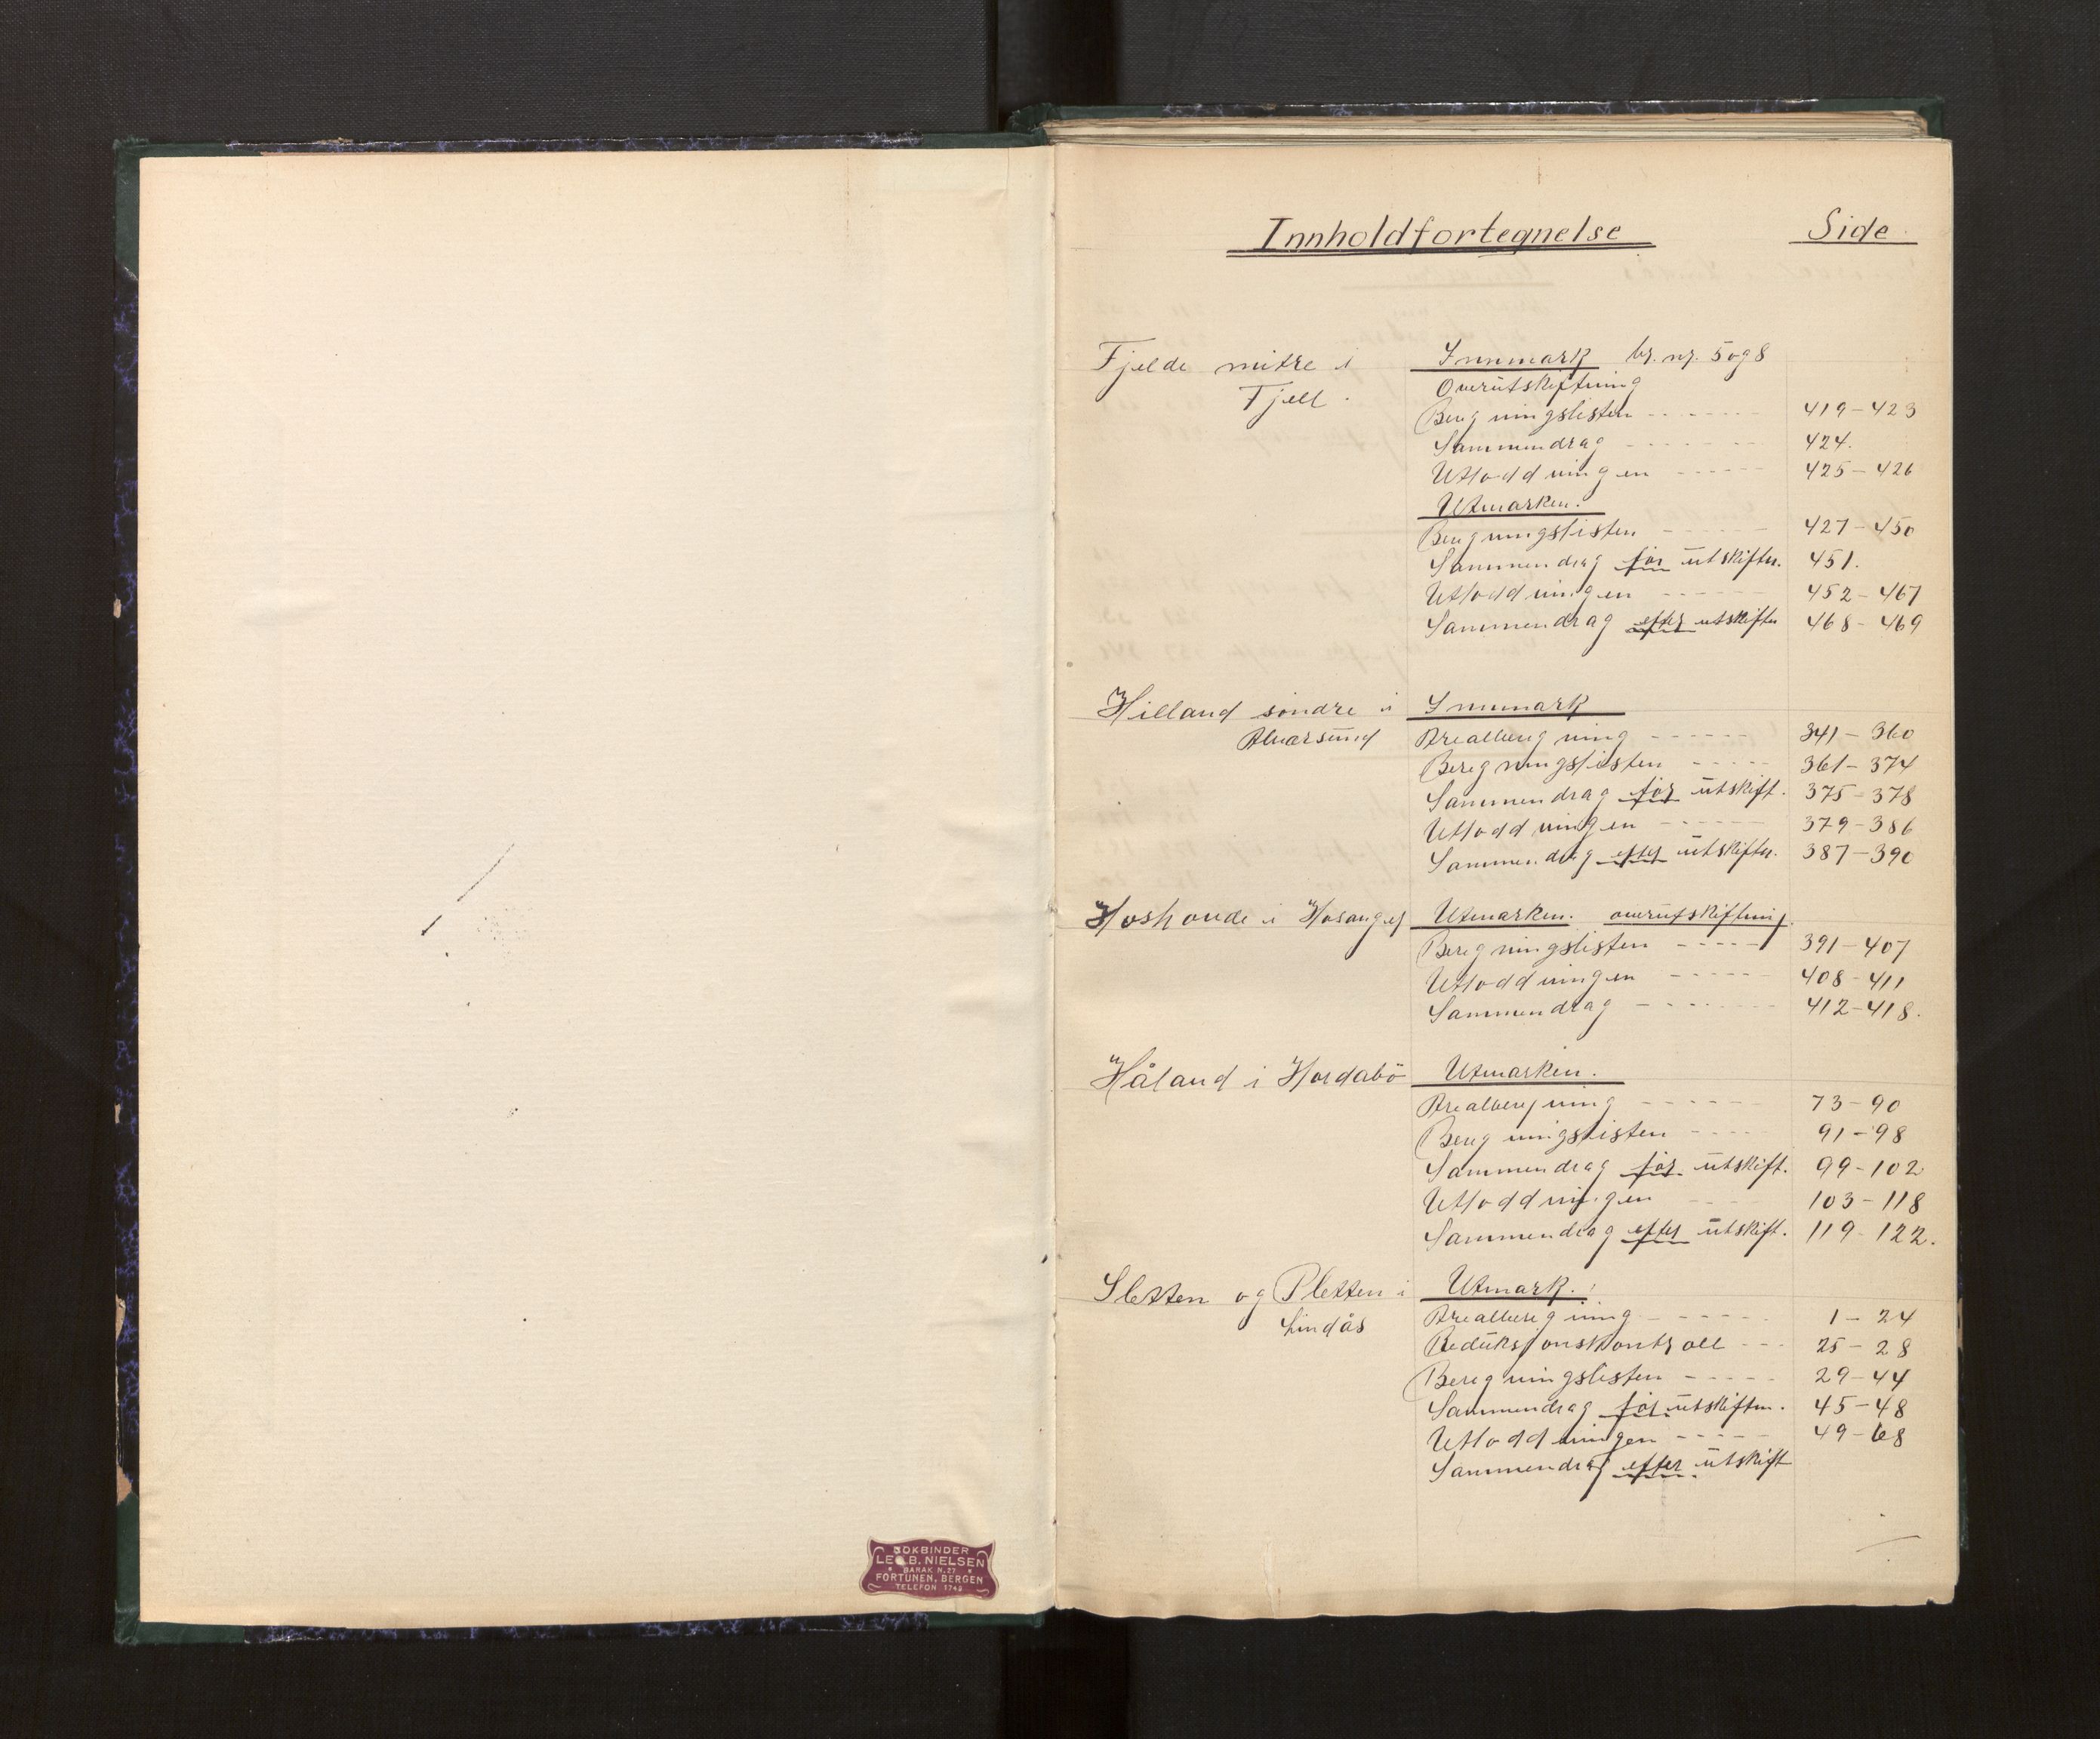 BOKBINDER
LEO B. NIELSEN
BARAK N. 27
FORTUNEN, BERGEN
TELEFON 1746
Innholdfortegnelse Side
Fjelde mitre i Innmark br. nr. 5 og 8
Fjell. Overutskiftning
Beregningslisten 419-423
Sammendrag 424.
Utloddningen 425-426
Utmarken.
Beregningslisten 427-450
Sammendrag før utskiftn. 451.
Utloddningen 452-467
Sammendrag efter utskiftn 468-469
Hilland söndre i Innmark
Alversund Arealberegning 341-360
Beregningslisten 361-374
Sammendrag før utskift. 375-378
Utloddningen 379-386
Sammendrag efter utskiftn. 387-390
i Hosanger Utmarken. overutskiftning.
Beregningslisten 391-407
Utloddningen 408-411
Sammendrag 412-418.
Håland i Hordabö Utmarken.
Arealberegning 73-90
Beregningslisten 91-98
Sammendrag før utskift. 99-102
Utloddningen 103-118
Sammendrag efter utskift. 119-122.
Sletten og Pletten i Utmark.
Lindås Arealberegning 1-24
Reduksjonskontroll 25-28
Beregningslisten 29-44
Sammendrag før utskiftn. 45-48
Utloddningen 49-68
Sammendrag efter utskift